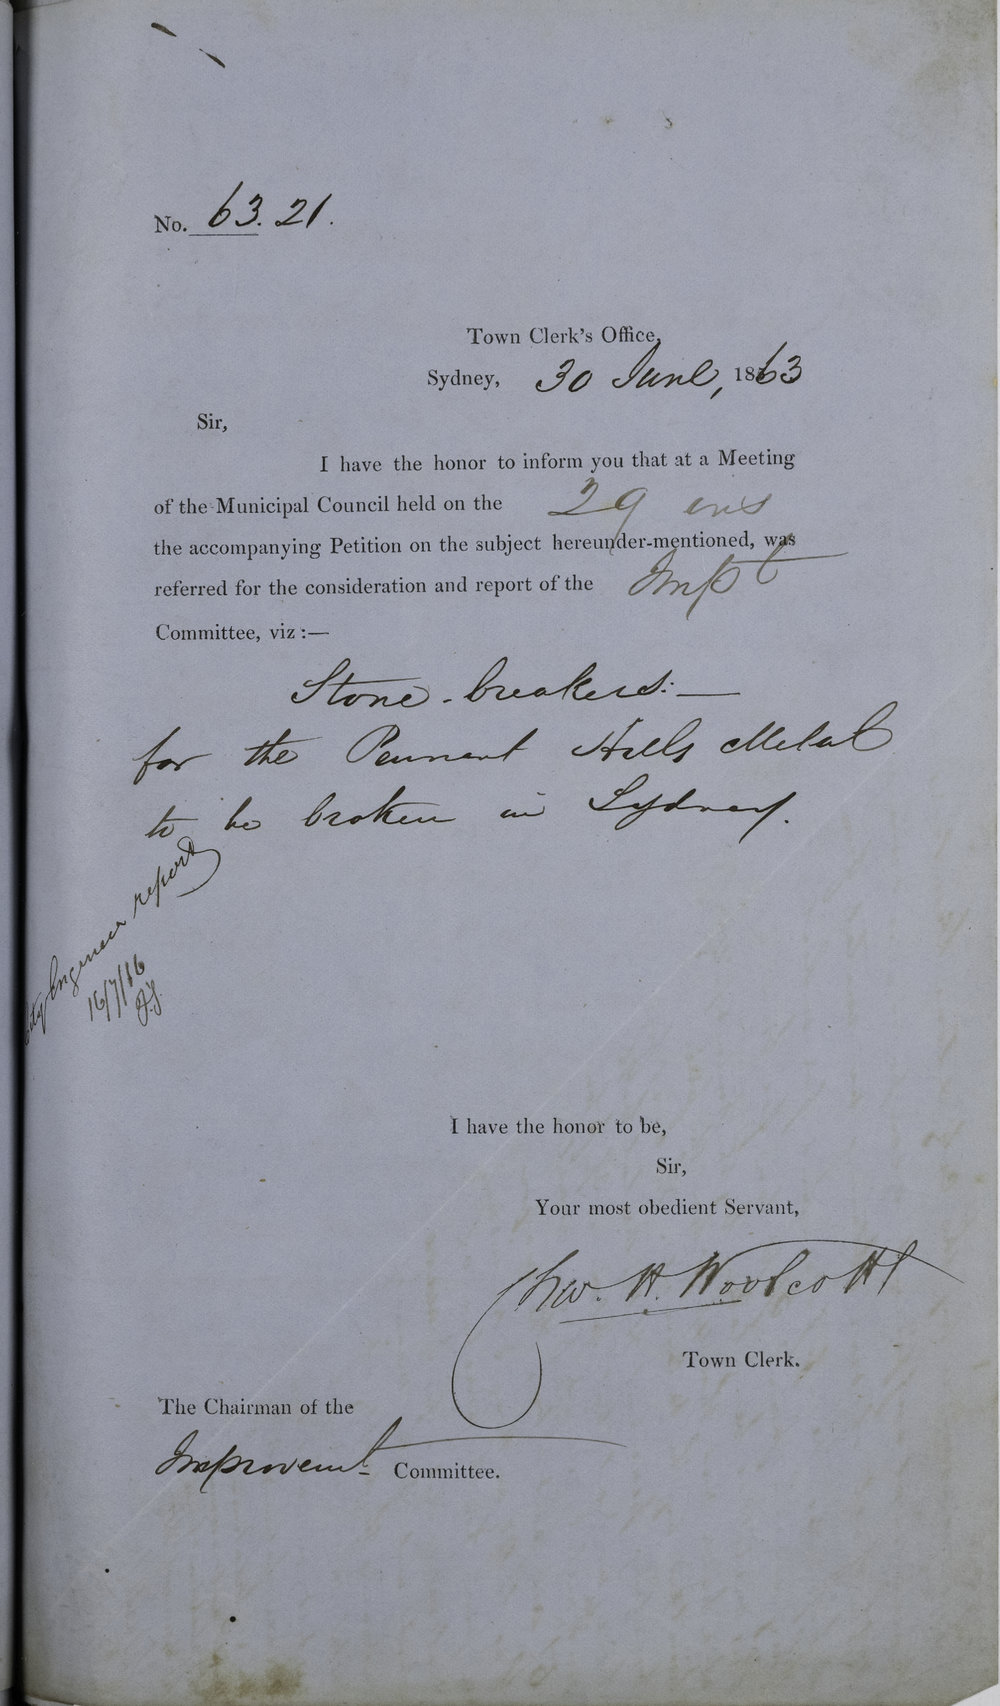 No. 63.21.
Town Clerk's Office,
Sydney, 30 June, 1863
Sir,
I have the honor to inform you that at a Meeting
of the Municipal Council held on the 29 ins
the accompanying Petition on the subject hereunder-mentioned, was
referred for the consideration and report of the Impt
Committee, viz :—
Stone-breakers:—
for the Pennant Hills Metal
to be broken in Sydney.
City Engineer report
16/7/
I have the honor to be,
Sir,
Your most obedient Servant,
Chas. H. Woolcott
Town Clerk.
The Chairman of the
Improvemt Committee.